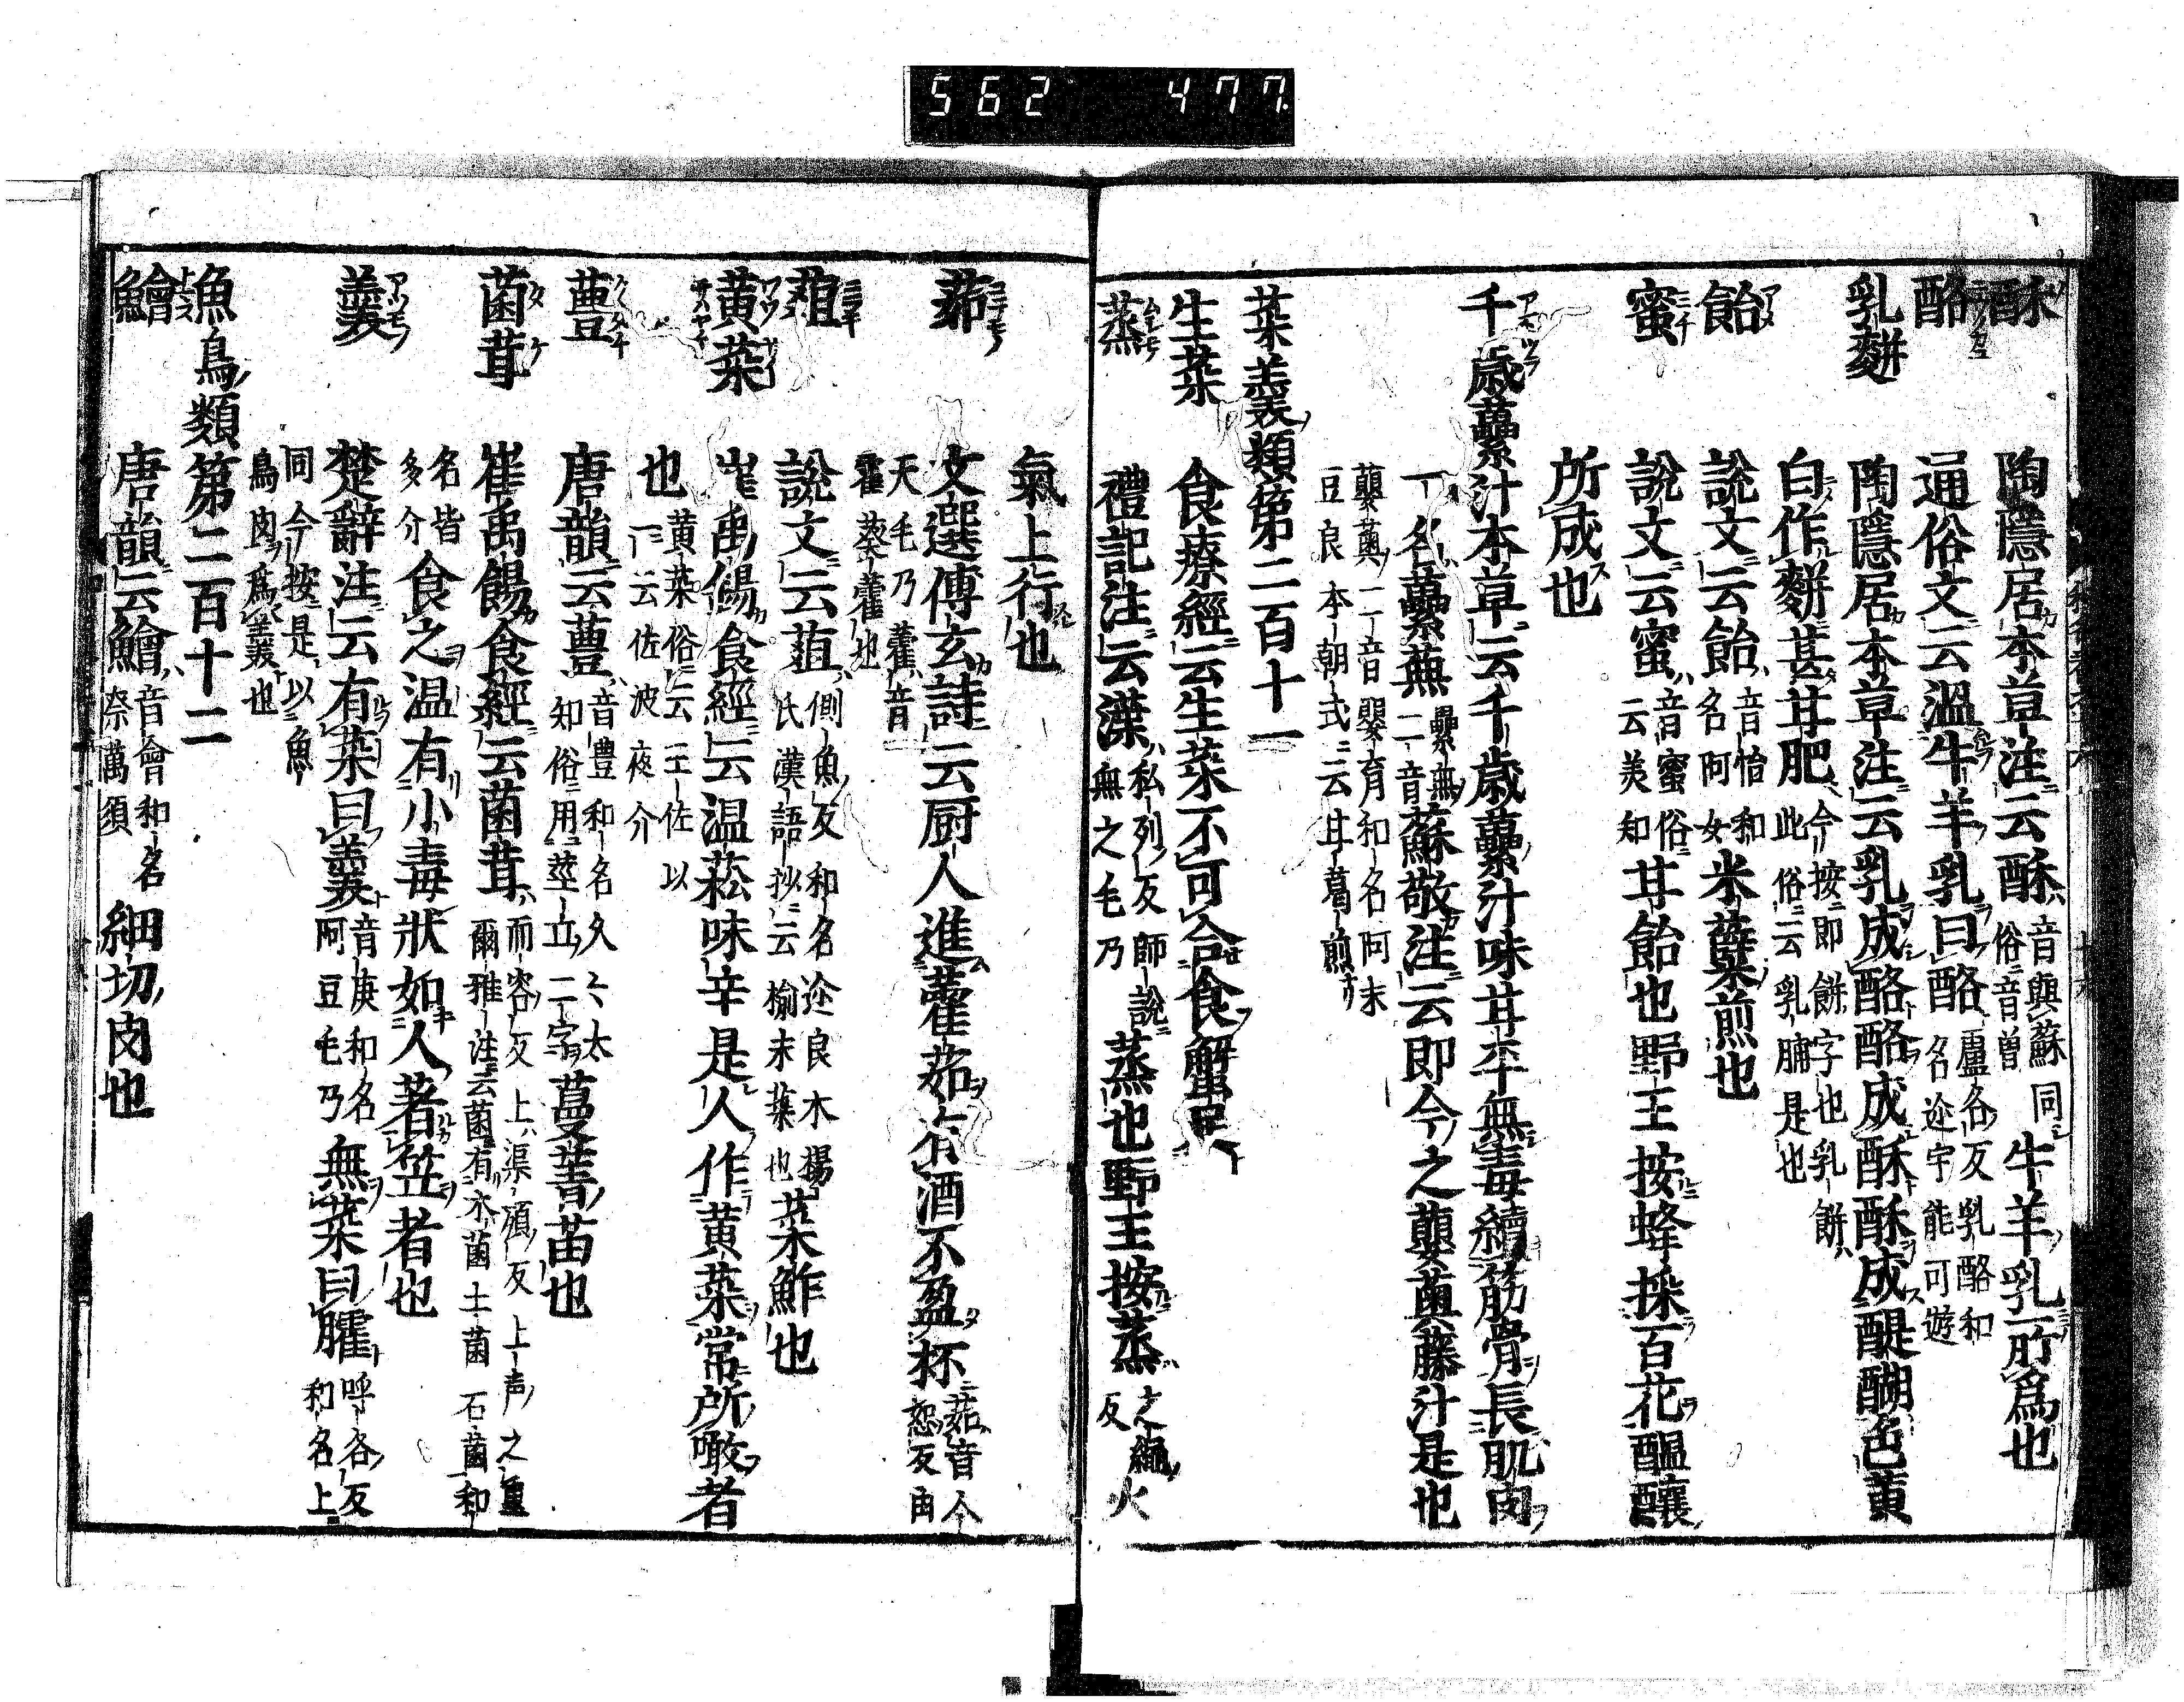 562 477
酥 陶隱居本草注云酥音與蘇同俗音曽牛羊乳所爲也
酪 通俗文云温牛羊乳曰酪盧各反乳酪和名迩宇能可遊
乳䴵 陶隱居本草注云乳成酪酪成酥酥成醍醐色黄
白作䴵甚甘肥今按即餅字也乳餅此俗云乳脯是也
飴 說文云飴音怡和名阿女米糵煎也
蜜 說文云蜜音蜜俗云美知甘飴也野王按蜂採百花醖釀
所成也
千歳蘽汁 本草云千歳蘽汁味甘平無毒續筋骨長肌肉
一名蘽蕪纍無二音蘇敬注云即今之蘡薁藤汁是也
蘡薁二音嬰育和名阿末豆良本朝式云甘葛煎
菜羹類第二百十一
生菜 食療經云生菜不可合食蟹足
蒸 禮記注云渫私列反師說無之毛乃蒸也野王按蒸之繩反火
氣上行也
茹 文選傅玄詩云厨人進藿茹有酒不盈杯茹音人恕反由
天毛乃藿音霍葵藿也
菹 說文云菹側魚反和名迩良木楊氏漢語抄云楡末菜也菜鮓也
黄菜 崔禹錫食經云温菘味辛是人作黄菜常所噉者
也黄菜俗云王佐以一云佐波夜介
蘴 唐韻云蘴音豊和名久々太知俗用莖立二字蔓菁苗也
菌茸 崔禹錫食經云菌茸而容反上渠殞反上声之重爾雅注云菌有木菌土菌石菌和
名皆多介食之温有小毒狀如人著笠者也
羹 楚辭注云有菜曰羹音庚和名阿豆毛乃無菜曰臛呼各反和名上
同今按是以魚鳥肉爲羹也
魚鳥類第二百十二
鱠 唐韻云鱠音會和名奈萬須細切肉也